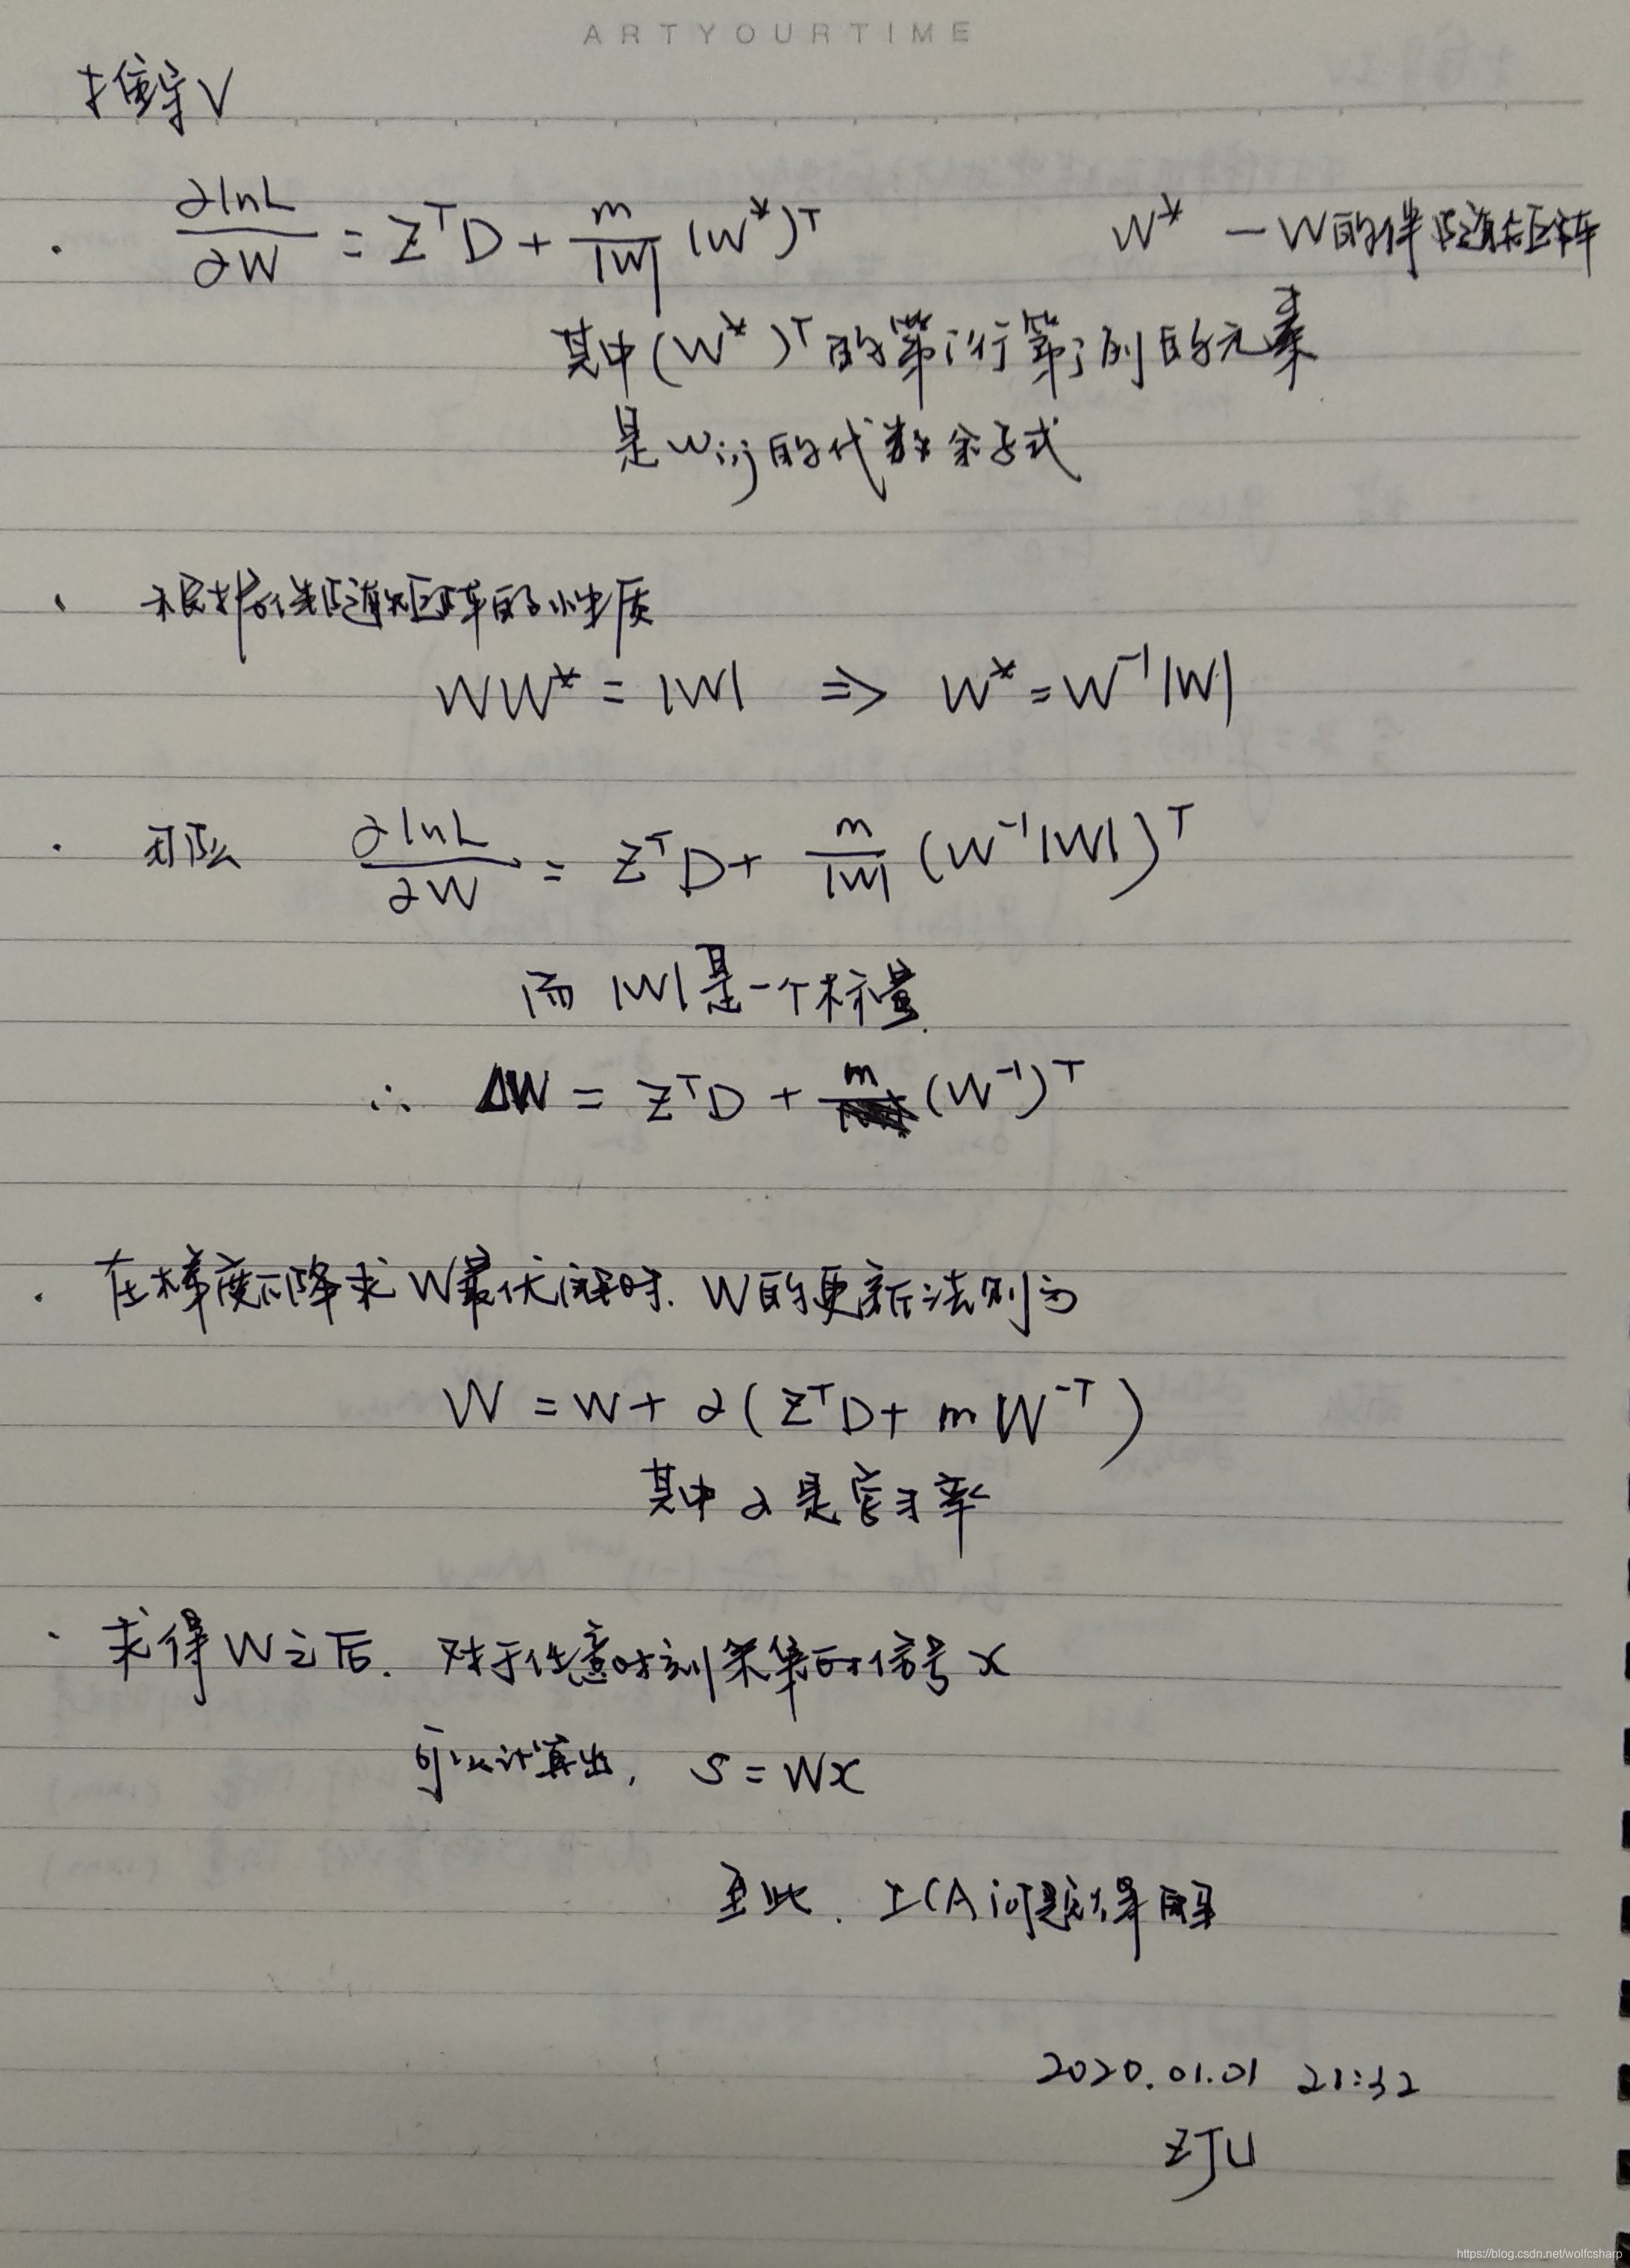 ARTYOURTIME
推导V
· ∂lnL/∂W = Z^T D + m/|W| (W*)^T    W* — W的伴随矩阵
其中(W*)^T的第i行第j列的元素
是w_{i,j}的代数余子式
· 根据伴随矩阵的性质
WW* = |W| ⇒ W* = W^{-1}|W|
· 那么 ∂lnL/∂W = Z^T D + m/|W| (W^{-1}|W|)^T
而|W|是一个标量.
∴ ΔW = Z^T D + m (W^{-1})^T
· 在梯度下降求W最优解时. W的更新法则为
W = W + α(Z^T D + m W^{-T})
其中α是学习率
· 求得W之后. 对于任意时刻采集的信号x
可以计算出, s = Wx
至此. ICA问题得解
2020.01.01 21:32
ZJU
https://blog.csdn.net/wolfcsharp